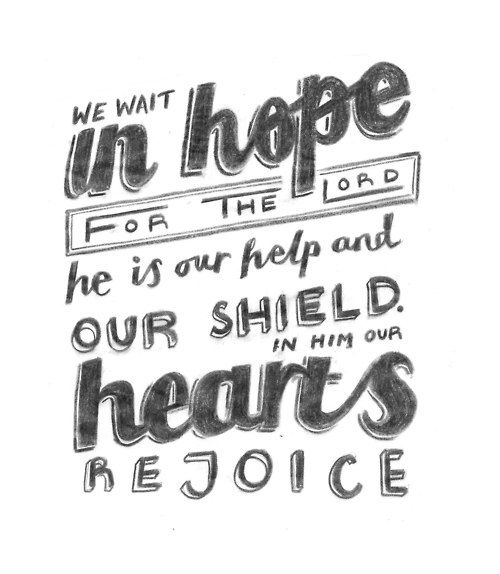 WE WAIT
in hope
FOR THE LORD
he is our help and
OUR SHIELD.
IN HIM OUR
hearts
REJOICE